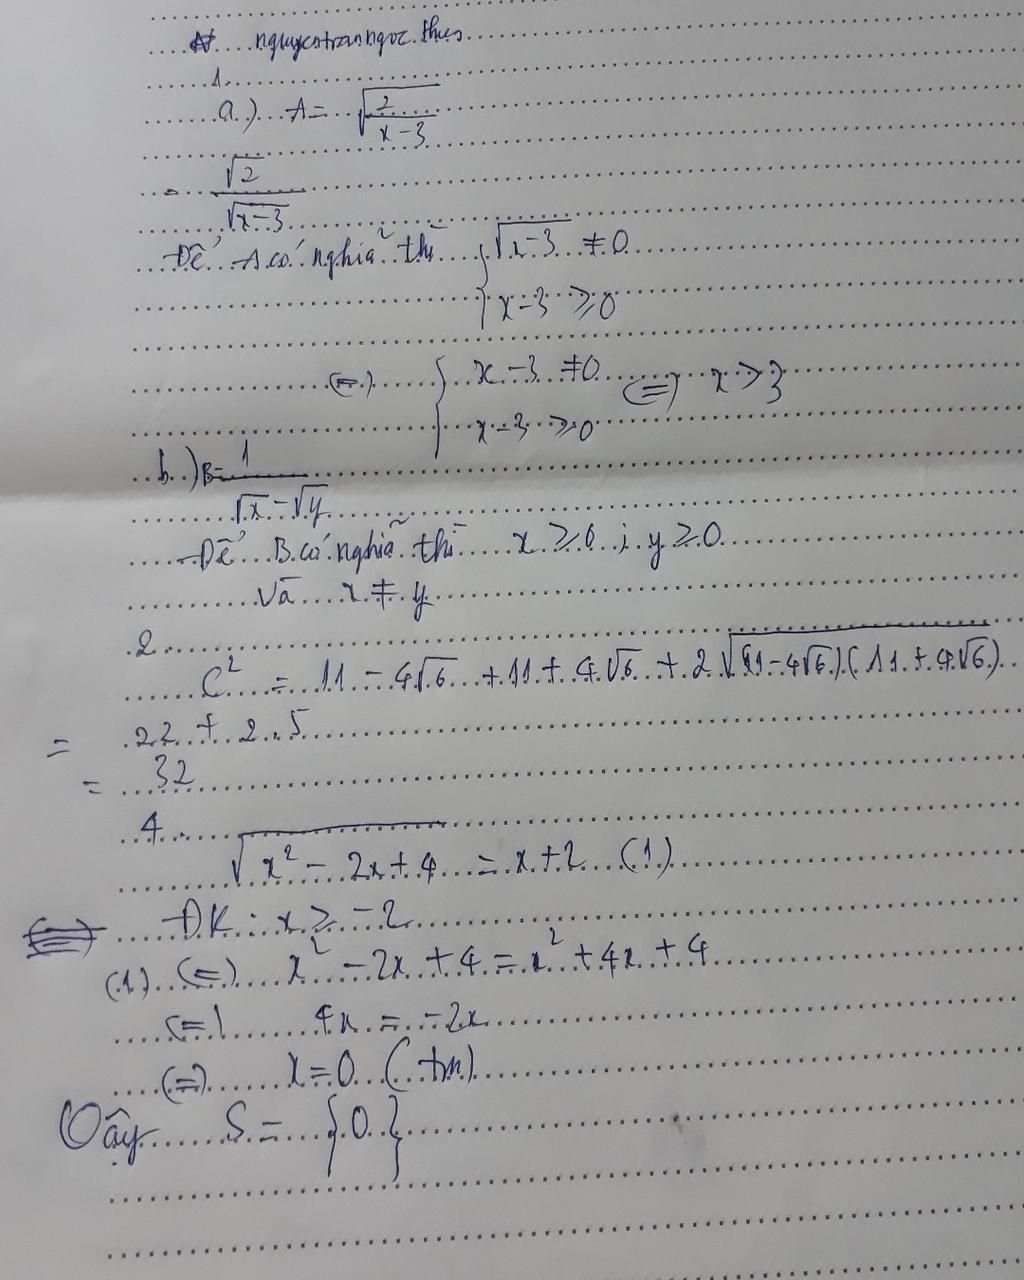 nguyentranngoc thus
1.
a) A = √(2/(x-3))
= √2/√(x-3)
Để A có nghĩa thì { √(x-3) ≠ 0
x-3 ≥ 0
(=) { x-3 ≠ 0 (=) x > 3
x-3 ≥ 0
b.) B = 1/(√x - √y)
Để B có nghĩa thì x ≥ 0 ; y ≥ 0
Và x ≠ y
2.
C² = 11 - 4√6 + 11 + 4√6 + 2√((11-4√6)(11+4√6))
= 22 + 2.5
= 32
4.
√(x² - 2x + 4) = x+2 (1)
ĐK: x ≥ -2
(1) (=) x² - 2x + 4 = x² + 4x + 4
(=) 4x = -2x
(=) x = 0 (tm)
Vậy S = {0}